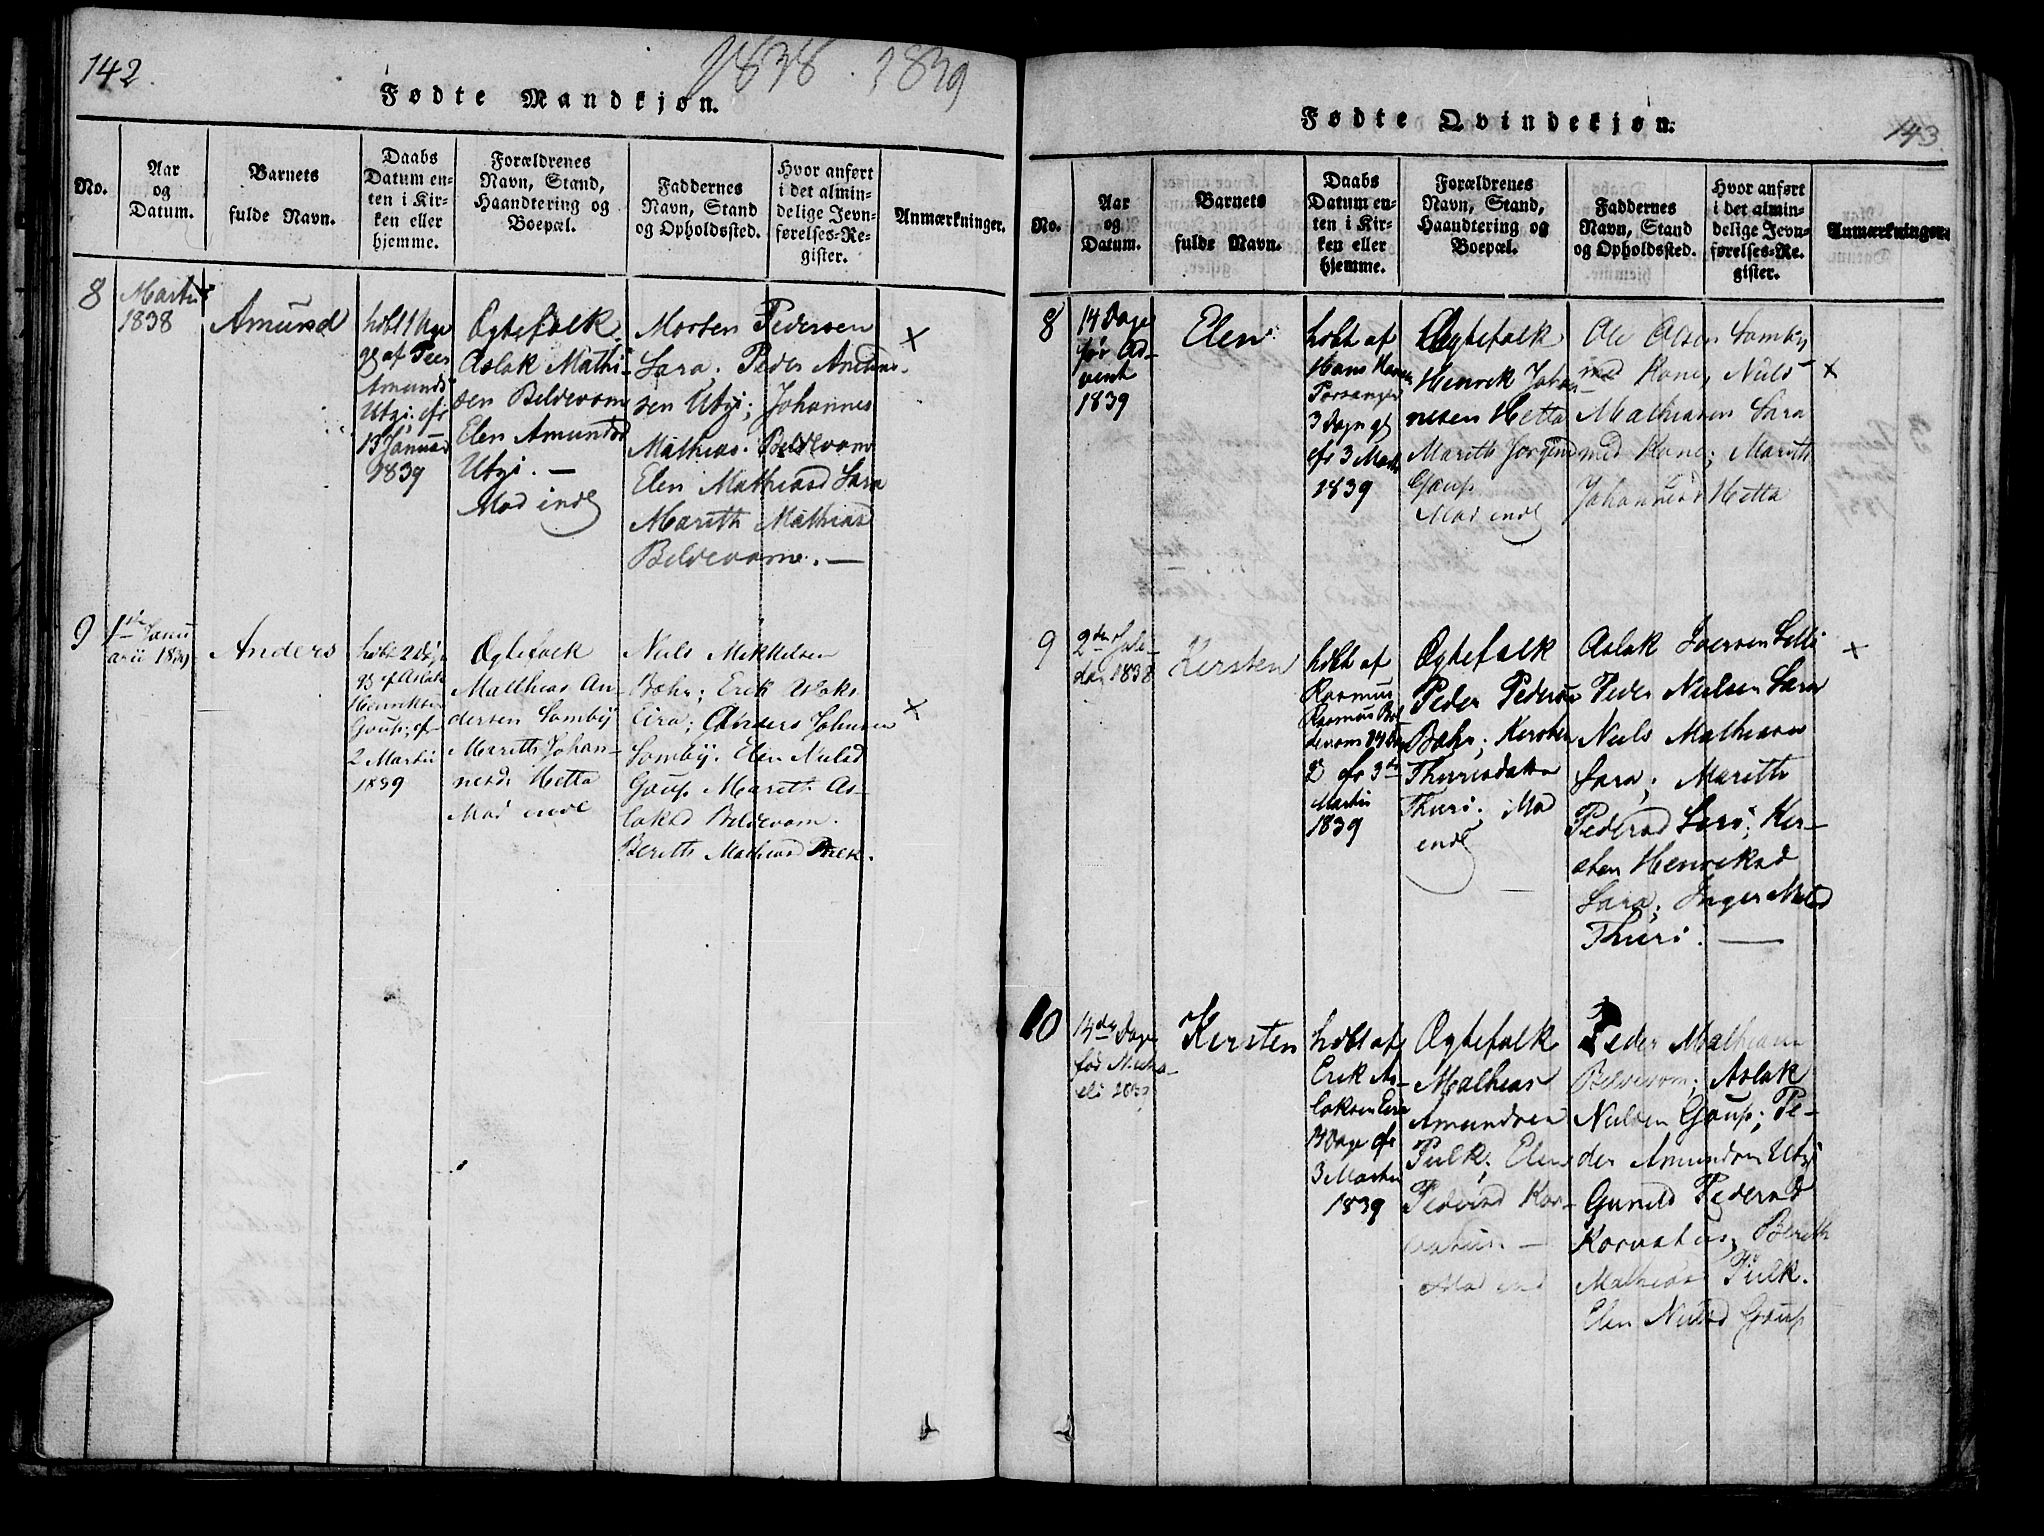 142.
1838. 1839
Fødte Mandkjøn.
No.
Aar
og
Datum.
Barnets
fulde Navn.
Daabs
Datum en-
ten i Kir-
ken eller
hjemme.
Forældrenes
Navn, Stand,
Haandtering og
Boepæl.
Faddernes
Navn, Stand
og Opholdssted.
Hvor anført
i det almin-
delige Jevn-
førelses-Re-
gister.
Anmærkninger.
8
Martii
1838
Amund
1 Uge
gl af Peer
Amunds
Utzi; cfr
13 Januar
1839
Ægtefolk
Aslak Mathi-
sen Beldevom
Elen Amundsd
Utzi. —
Mod indl
Morten Pedersen
Sara. Peder Amund-
sen Utzi; Johannes
Mathias. Beldevom
Elen Mathiasd Sara
Mareth Mathiasd
Beldevom. —
×
9
1ste Janu
arii 1839
Anders
2 Dage
gl af Aslak
Henriksen
Goup; cfr
2 Martii
1839
Ægtefolk
Matthias An-
dersen Somby
Marreth Johan-
nesdr Hetta
Mod endl
Niels Mikkelsen
Bæhr; Erik Aslaks
Eira; Anders Johnsen
Somby. Elen Nielsd
Goup Mareth As-
laksd Beldevom.
Bereth Mathiasd Pulk.
×
143
Fødte Qvindekjøn.
No.
Aar
og
Datum.
Barnets
fulde Navn.
Daabs
Datum en-
ten i Kir-
ken eller
hjemme.
Forældrenes
Navn, Stand,
Haandtering og
Boepæl.
Faddernes
Navn, Stand
og Opholdssted.
Hvor anført
i det almin-
delige Jevn-
førelses-Re-
gister.
Anmærkninger.
8
14 Dage
før Ad-
vent
1839
Elen
hdbt af
Hans Hansen
Porsanger
3 Dage gl
cfr 3 Martii
1839
Ægtefolk
Henrik Johan-
nesen Hetta
Mareth Jorgensd
Goup
Mod endl
Ole Olsen Somby
med Kone, Niels
Mathiasen Sara
med Kone; Mareth
Johannesd Hetta
×
9
2den Jule-
dag 1838
Kersten
hdbt af
Rasmus
Rasmus Bel-
devom 14
gl cfr 3de
Martii
1839
Ægtefolk
Peder Pedersen
Bæhr; Kersten
Thuresdatter
Thuri. Mod
endl
Aslak Iversen
Peder Nielsen Sara
Niels Mathiasen
Sara; Mareth
Pedersd Sara; Ker-
sten Henriksd
Sara; Inger Nielsd
Thuri. —
×
10
14de Dage
før Micha-
eli 1838
Kersten
hdbt af
Erik As-
laksen Eira
Dage cfr
3 Martii
1839
Ægtefolk
Mathias
Amundsen
Pulk; Elen
Pedersd Kor-
—
Mod endl
Peder Mathiasen
Beldevom; Aslak
Nielsen Goup; Pe-
der Amundsen Utzi
Gunild Pedersd
Bereth
Mathiasd Pulk.
Elen Nielsd Goup